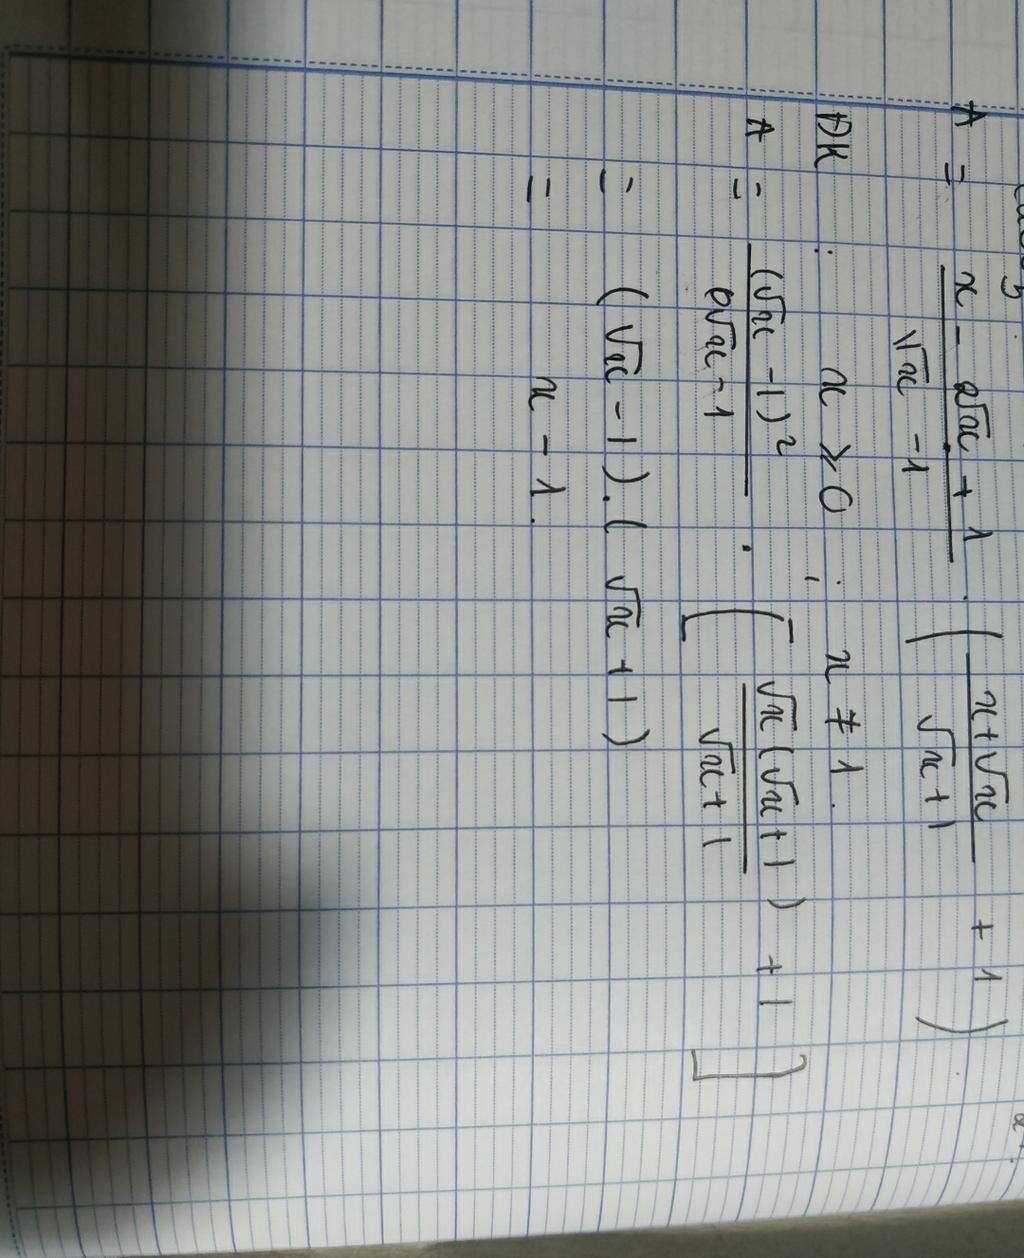 A = \frac{x - 2\sqrt{x} + 1}{\sqrt{x} - 1} . ( \frac{x + \sqrt{x}}{\sqrt{x} + 1} + 1 )
ĐK : x ≥ 0 ; x ≠ 1.
A = \frac{(\sqrt{x} - 1)^2}{\sqrt{x} - 1} . [ \frac{\sqrt{x}(\sqrt{x} + 1)}{\sqrt{x} + 1} + 1 ]
= (\sqrt{x} - 1).(\sqrt{x} + 1)
= x - 1.